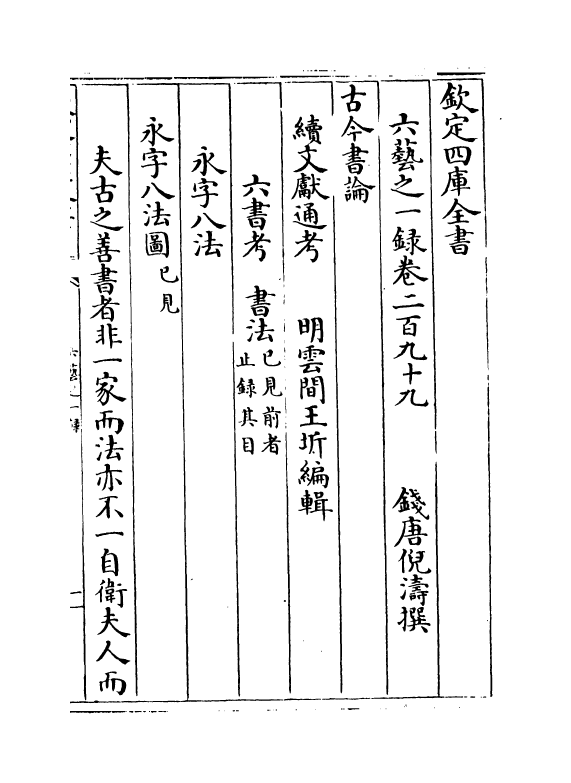 欽定四庫全書
六藝之一録卷二百九十九　錢唐倪濤撰
古今書論
續文獻通考　明雲間王圻編輯
六書考　書法已見前者止録其目
永字八法
永字八法圖已見
夫古之善書者非一家而法亦不一自衛夫人而
六藝之一録